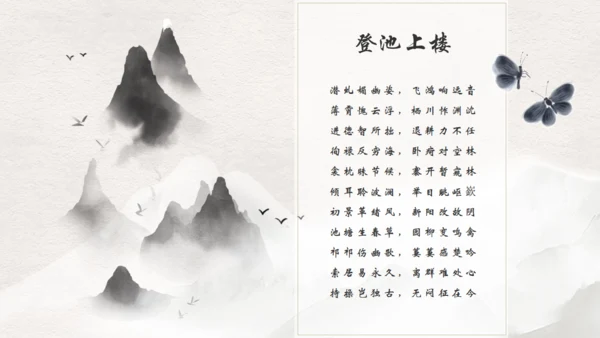 登池上楼
潜虬媚幽姿，飞鸿响远音
薄霄愧云浮，栖川怍渊沈
进德智所拙，退耕力不任
徇禄反穷海，卧疴对空林
衾枕昧节候，褰开暂窥林
倾耳聆波澜，举目眺岖嵚
初景革绪风，新阳改故阴
池塘生春草，园柳变鸣禽
祁祁伤幽歌，萋萋感楚吟
索居易永久，离群难处心
持操岂独古，无闷征在今